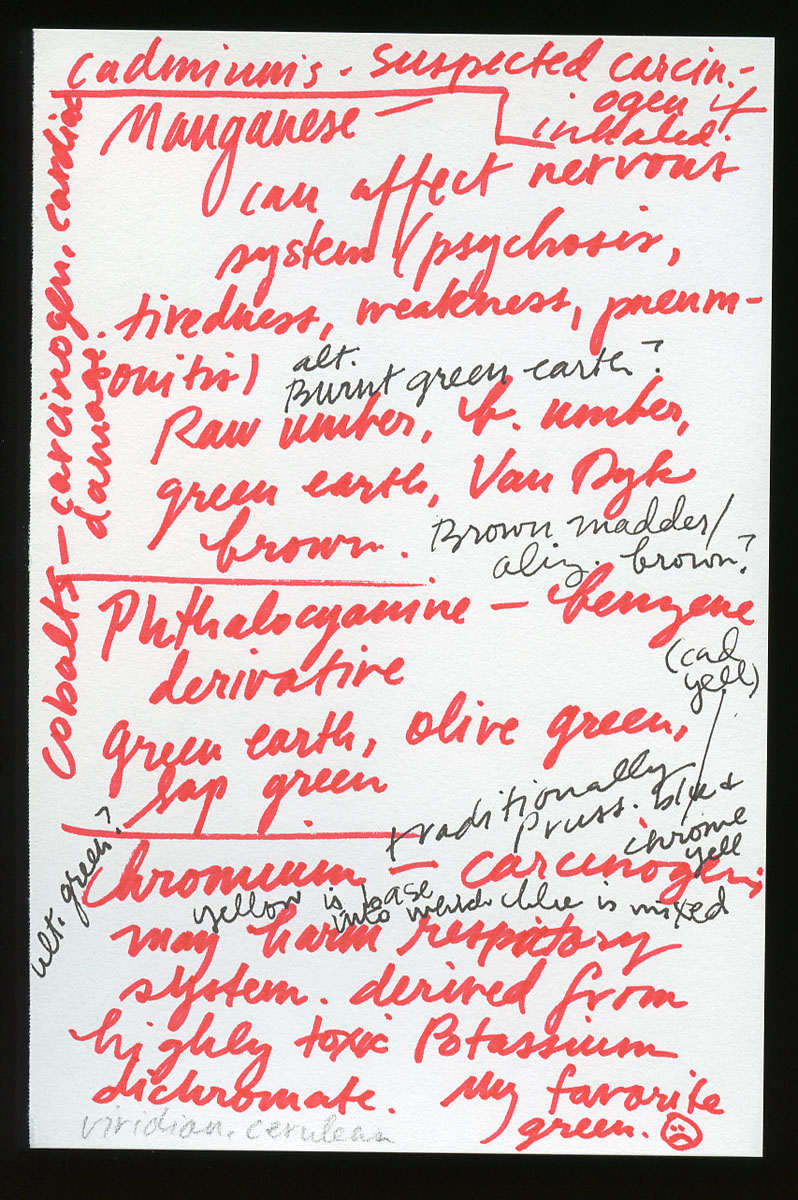 Cadmiums - suspected carcin-
ogen if
inhaled.
Manganese —
can affect nervous
system (psychosis,
tiredness, weakness, pneum-
onitis)
alt.
Burnt green earth?
Raw umber, b. umber,
green earth, Van Dyk
brown.
Brown madder/
aliz. brown?
Cobalts — carcinogen, cardiac
damage.
Phthalocyanine — benzene
derivative
(cad
yell)
green earth, olive green,
sap green
traditionally
Pruss. blue +
chrome
yell
alt. green?
Chromium — carcinogen;
yellow is base
into which blue is mixed
may harm respitory
system. derived from
highly toxic Potassium
dichromate. My favorite
green.
viridian, cerulean